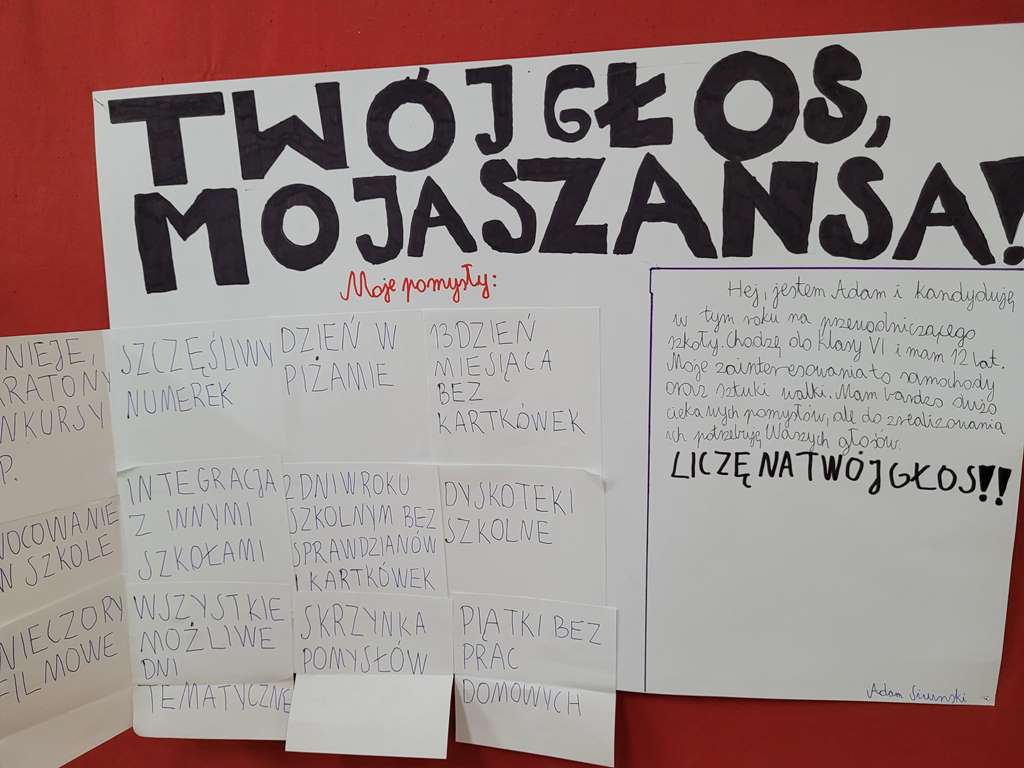 TWÓJ GŁOS,
MOJA SZANSA!
Moje pomysły:
NIEJE,
RATONY
NKURSY
P.
SZCZĘŚLIWY
NUMEREK
DZIEŃ W
PIŻAMIE
13 DZIEŃ
MIESIĄCA
BEZ
KARTKÓWEK
NOCOWANIE
W SZKOLE
INTEGRACJA
Z INNYMI
SZKOŁAMI
2 DNI W ROKU
SZKOLNYM BEZ
SPRAWDZIANÓW
I KARTKÓWEK
DYSKOTEKI
SZKOLNE
WIECZORY
FILMOWE
WSZYSTKIE
MOŻLIWE
DNI
TEMATYCZNE
SKRZYNKA
POMYSŁÓW
PIĄTKI BEZ
PRAC
DOMOWYCH
Hej, jestem Adam i kandyduję
w tym roku na przewodniczącego
szkoły. Chodzę do klasy VI i mam 12 lat.
Moje zainteresowania to samochody
oraz sztuki walki. Mam bardzo dużo
ciekawych pomysłów, ale do zrealizowania
ich potrzebuję Waszych głosów.
LICZĘ NA TWÓJ GŁOS!!
Adam